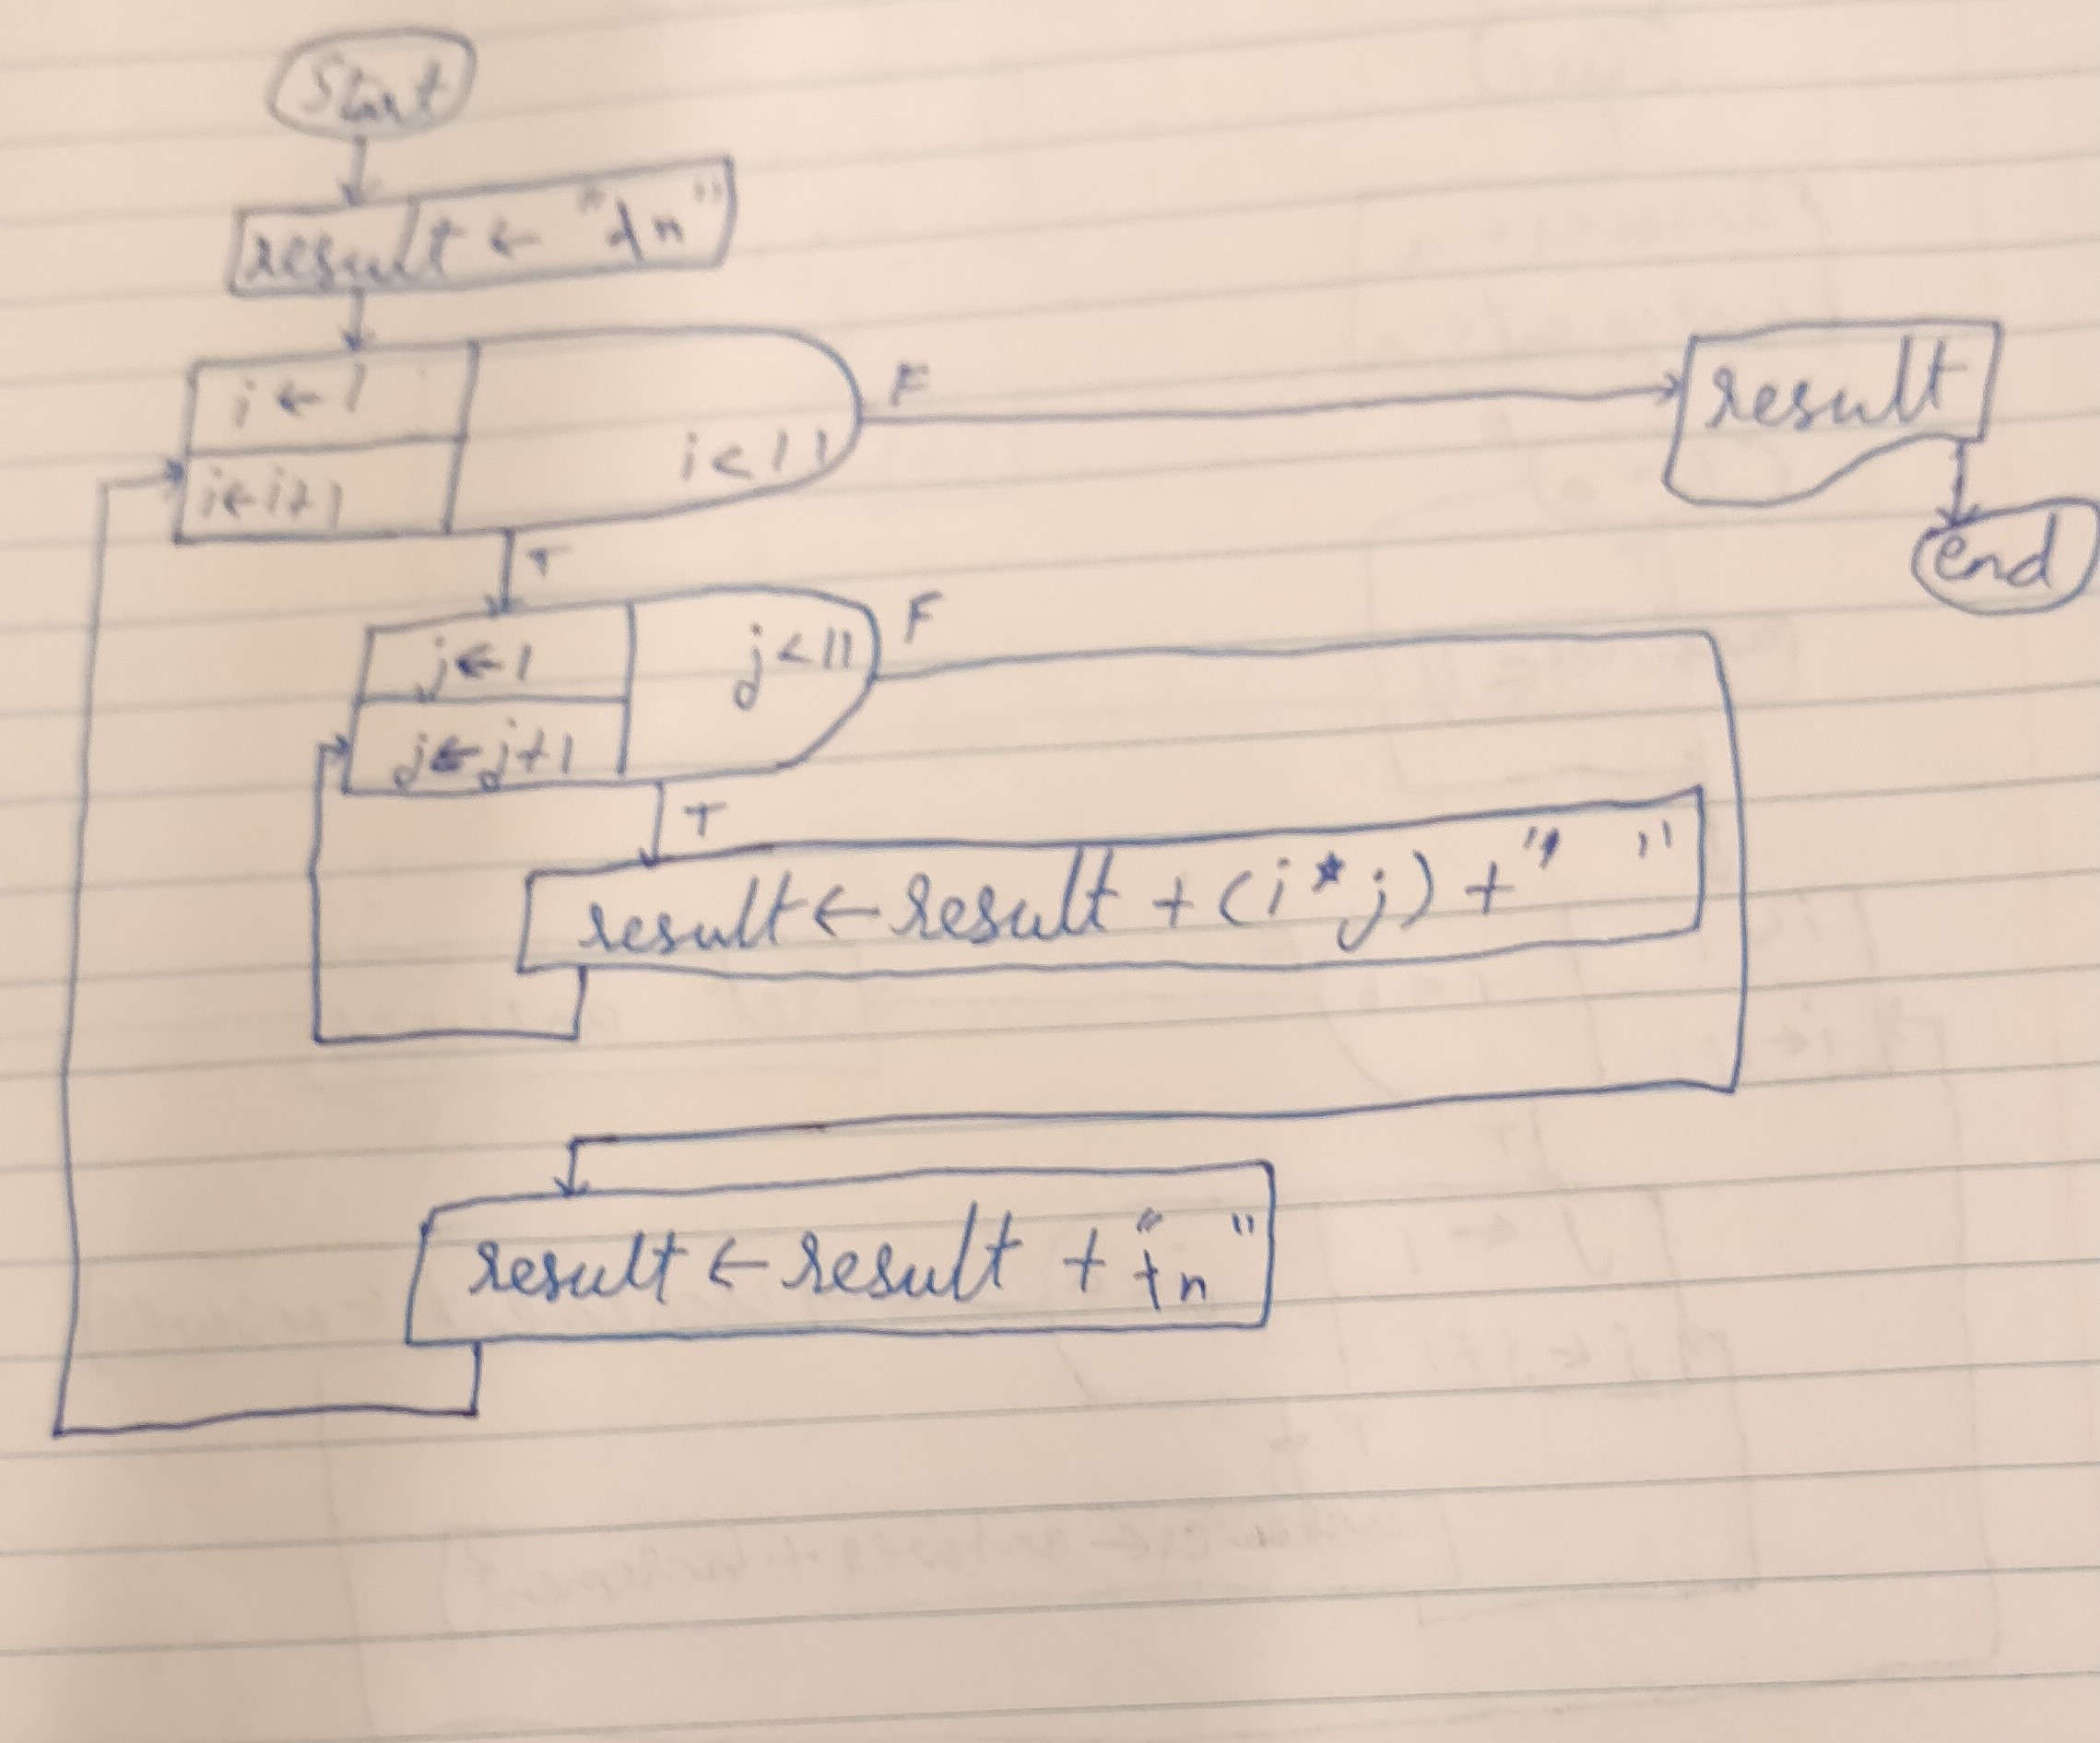 Start
result ← "\n"
i ← 1
i ← i+1
i < 11
F
result
end
T
j ← 1
j ← j+1
j < 11
F
T
result ← result + (i * j) + " "
result ← result + "\n"